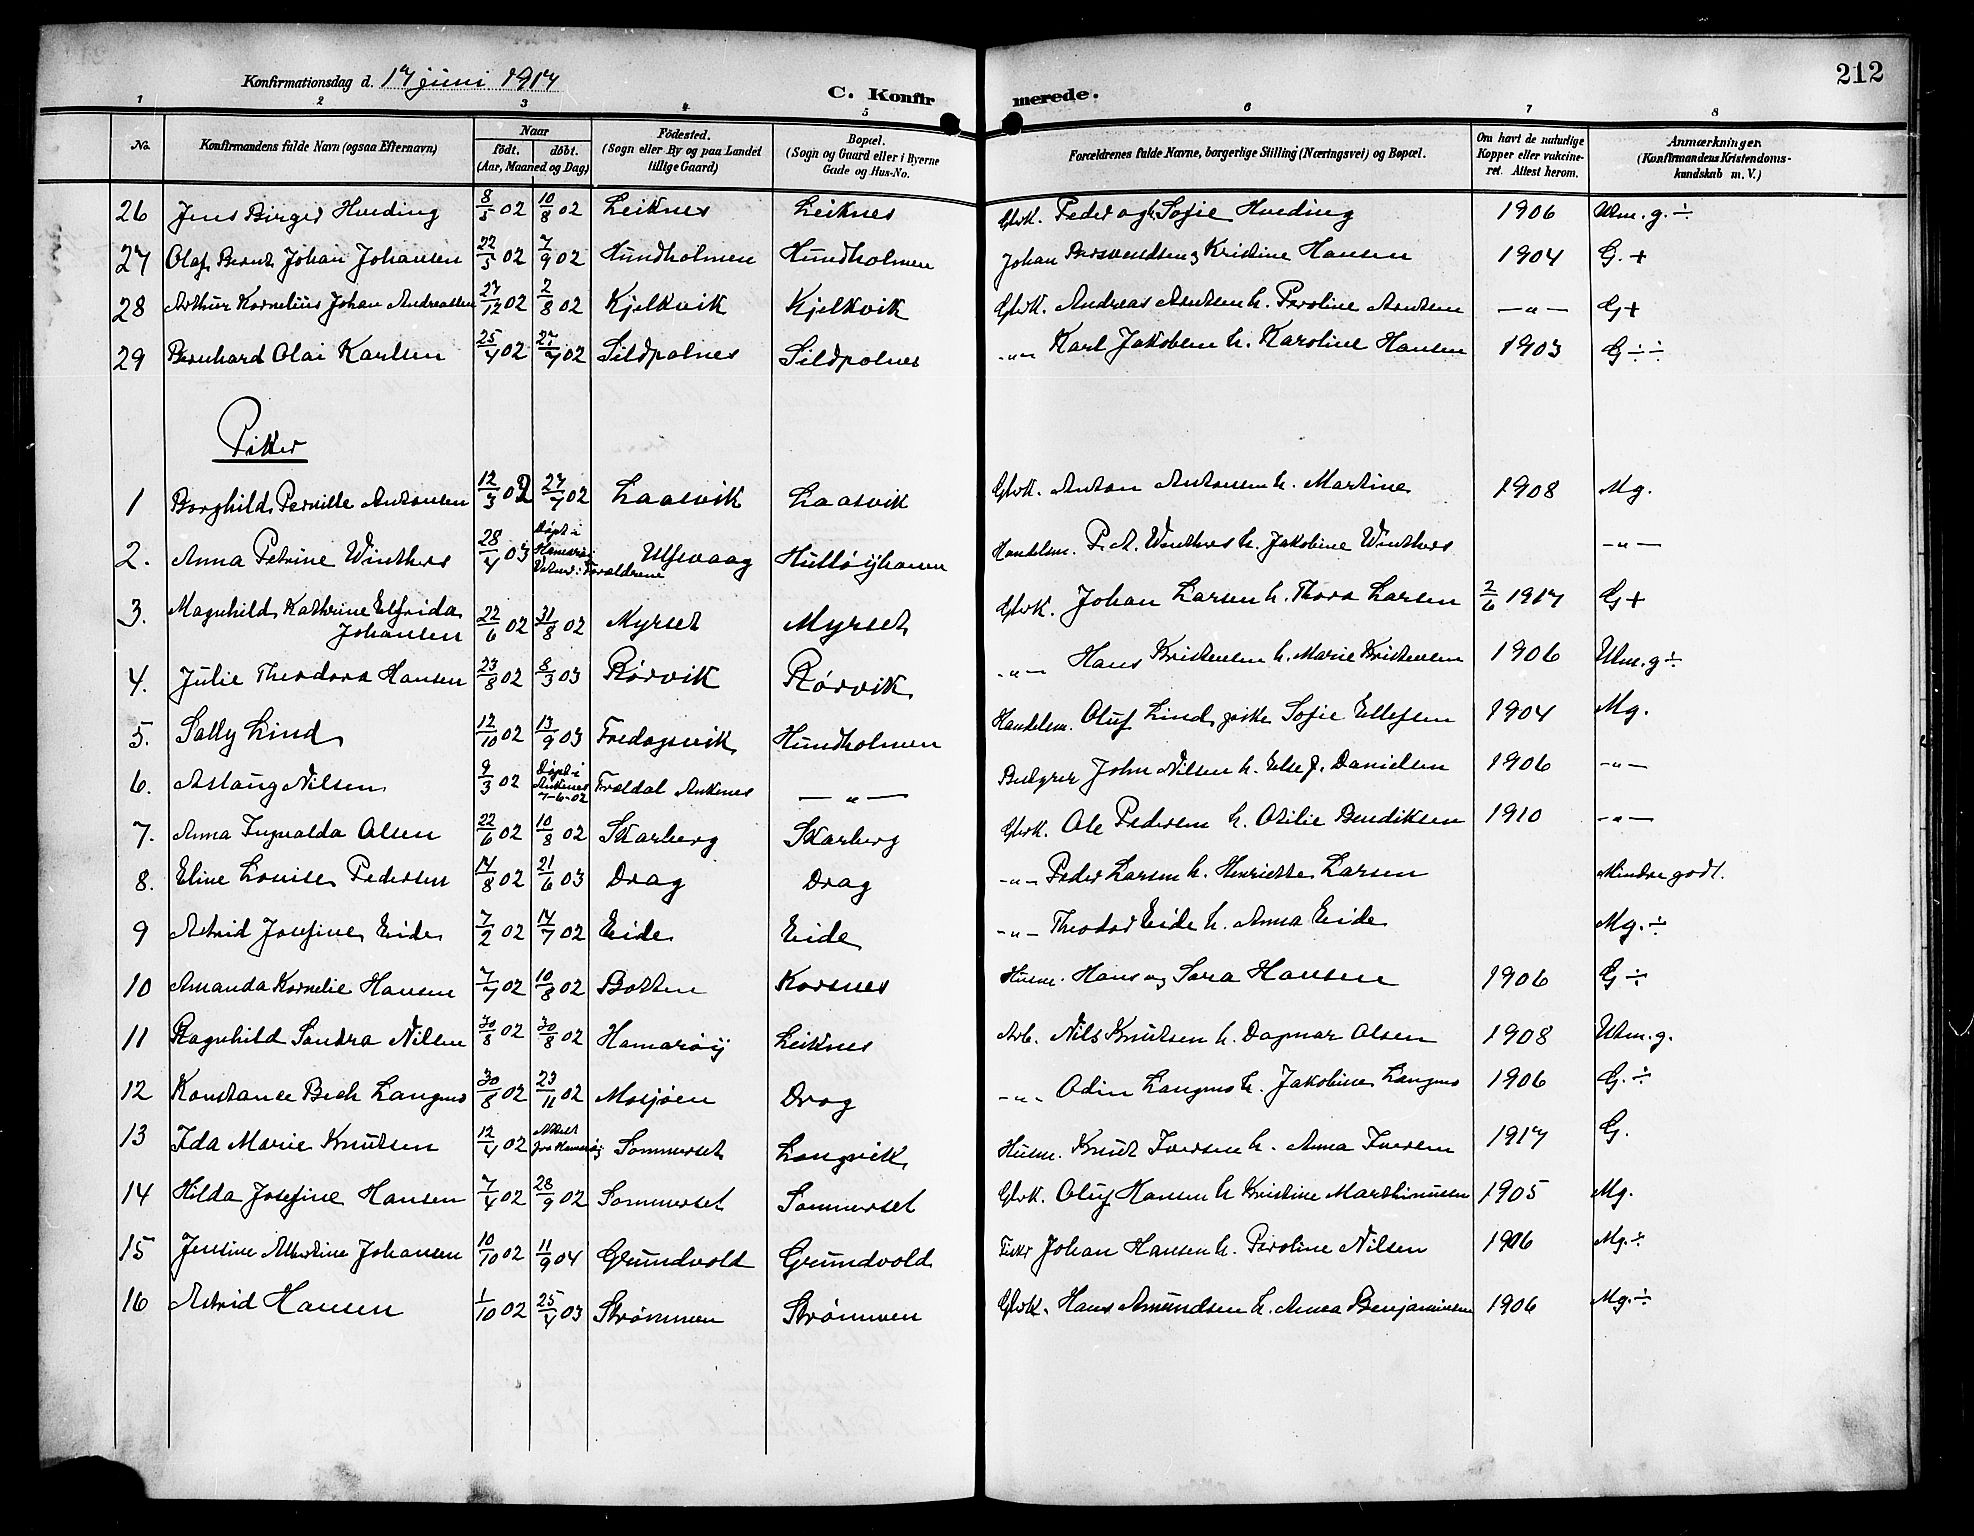 212
Konfirmationsdag d. 17 juni 1917
C. Konfirmerede.
1 2 3 4 5 6 7 8
No. Konfirmandens fulde Navn (ogsaa Efternavn) Naar født. døbt. (Aar, Maaned og Dag) Fødested. (Sogn eller By og paa Landet tillige Gaard) Bopæl. (Sogn og Gaard eller i Byerne Gade og Hus-No. Forældrenes fulde Navne, borgerlige Stilling (Næringsvei) og Bopæl. Om havt de naturlige Kopper eller vakcineret. Attest herom. Anmærkninger. (Konfirmandens Kristendomskundskab m. V.)
26 Jens Birger Hveding 8/5 02 10/8 02 Leiknes Leiknes Gbrk. Peder og Sofie Hveding 1906 Utm. g. ÷
27 Olaf Bernt Johan Johansen 22/5 02 7/9 02 Hundholmen Hundholmen Johan Kristine Hansen 1904 G. +
28 Arthur Kornelius Johan Andreassen 27/12 02 2/8 02 Kjelkvik Kjelkvik Gbrk. Andreas Arntsen h. Peroline Arntsen —"— G +
29 Bernhard Olai Karlsen 25/4 02 27/7 02 Sildpolnes Sildpolnes -"- Karl Jakobsen h. Karoline Hansen 1903 G ÷ ÷
Piker
1 Borghild Pernille Antonsen 12/3 02 27/7 02 Laasvik Laasvik Gbrk. Anton Antonsen h. Martine 1908 Mg.
2. Anna Petrine Winthers 28/4 03 Døpt i Hamarøy Forældrene Ulfsvaag Hulløyhavn Handelsm. P. A. Winthers h. Jakobine Winthers —"—
3. Magnhild Kathrine Elfrida Johansen 22/6 02 31/8 02 Myrset Myrset Gbrk. Johan Larsen h. Thora Larsen 2/6 1917 G +
4. Julie Theodora Hansen 23/8 02 8/3 03 Rørvik Rørvik -"- Hans Kristensen h. Marie Kristensen 1906 Utm. g ÷
5. Sally Lind 12/10 02 13/9 03 Fredagsvik Hundholmen Handelsm. Oluf Lind Sofie Ellefsen 1904 Mg.
6. Aslaug Nilsen 9/3 02 Døpt i Ankenes 7-6-02 Trældal Ankenes —"— John Nilsen h. Else J. Danielsen 1906 —"—
7. Anna Ingvalda Olsen 22/6 02 10/8 02 Skarberg Skarberg Gbrk. Ole Pedersen h. Otilie Bendiksen 1910 —"—
8. Eline Louise Pedersen 14/8 02 21/6 03 Drag Drag -"- Peder Larsen h. Henriette Larsen Mindre godt.
9 Astrid Josefine Eide 7/2 02 14/7 02 Eide Eide -"- Theodor Eide h. Anna Eide Mg. ÷
10 Amanda Kornelie Hansen 7/7 02 10/8 02 Botten Korsnes Husm. Hans og Sara Hansen 1906 G ÷
11 Ragnhild Sandra Nilsen 30/8 02 30/8 02 Hamarøy Leiknes Arb. Nils Knutsen h. Dagmar Olsen 1908 Utm. g.
12 Konstance Bech Langmo 30/8 02 23/11 02 Mosjøen Drag -"- Odin Langmo h. Jakobine Langmo 1906 G. ÷
13 Ida Marie Knutsen 12/4 02 Attest fra Hamarøy Sommerset Langvik Husm. Knut Iversen h. Anna Iversen 1917 G.
14 Hilda Josefine Hansen 7/4 02 28/9 02 Sommerset Sommerset Gbrk. Oluf Hansen h Kristine Marthinusen 1905 Mg.
15 Jensine Albertine Johansen 10/10 02 11/9 04 Grundvold Grundvold Fisker Johan Hansen h. Peroline Nilsen 1906 Mg. ÷
16 Astrid Hansen 1/10 02 25/4 03 Strømmen Strømmen Gbrk. Hans Amundsen h. Anna Benjaminsen 1906 Mg. ÷